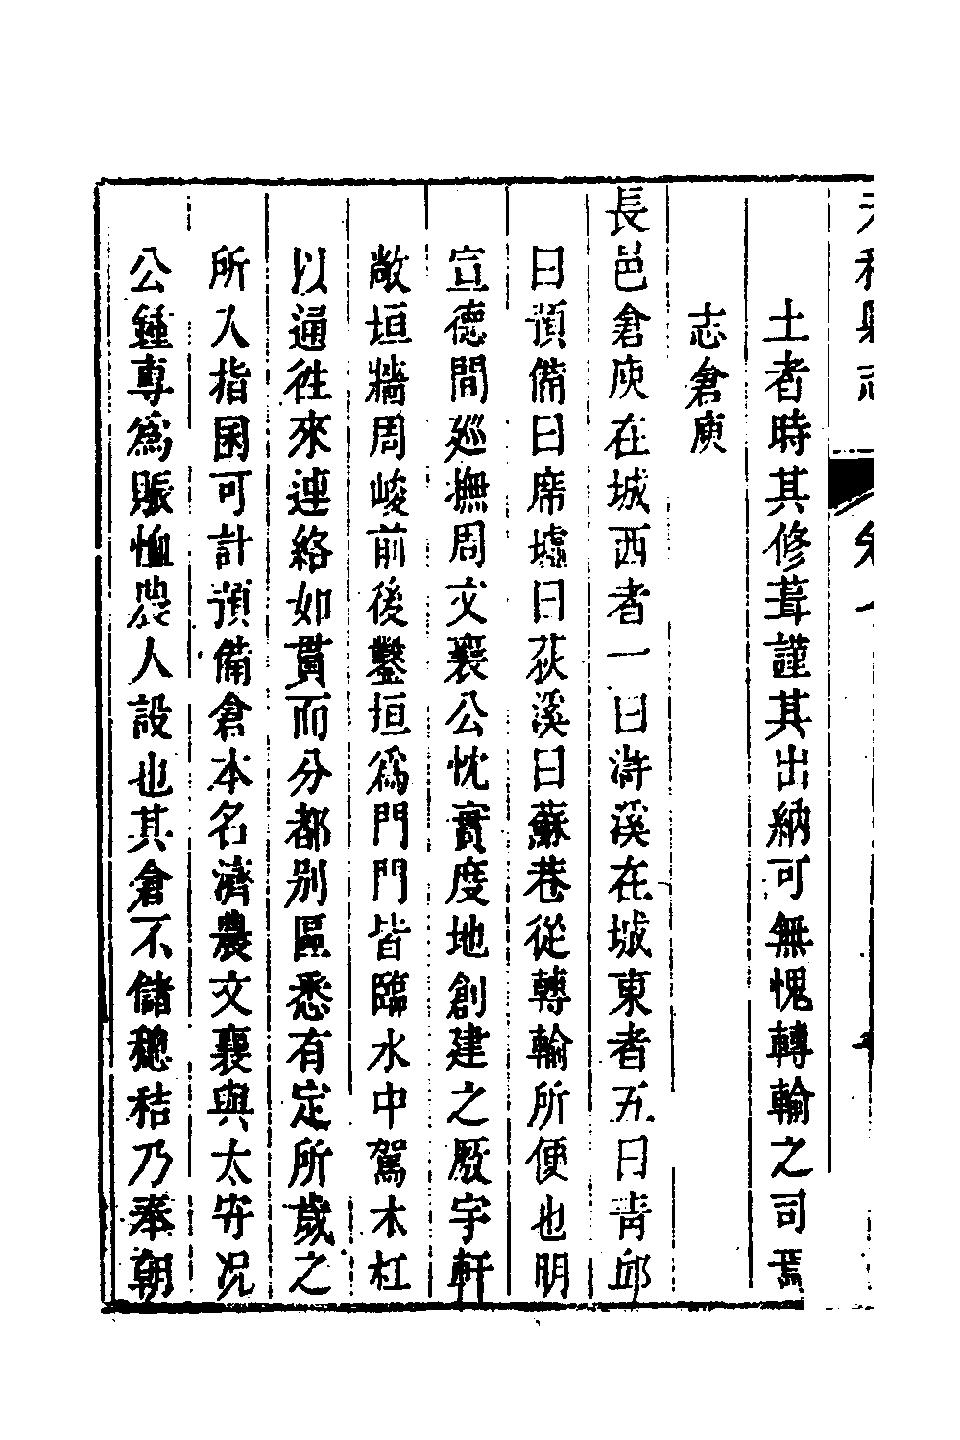 土者時其修葺謹其出納可無愧轉輸之司焉
志倉庾
長邑倉庾在城西者一曰滸溪在城東者五曰靑邱
曰預備曰席墟曰荻溪曰蘇巷從轉輸所便也明
宣德間廵撫周文襄公忱實度地創建之厫宇軒
敞垣牆周峻前後鑿垣爲門門皆臨水中駕木杠
以通徃來連絡如貫而分都别區悉有定所歲之
所入指囷可計預備倉本名濟農文襄與太守况
公鍾專爲賑恤農人設也其倉不儲穗秸乃奉朝